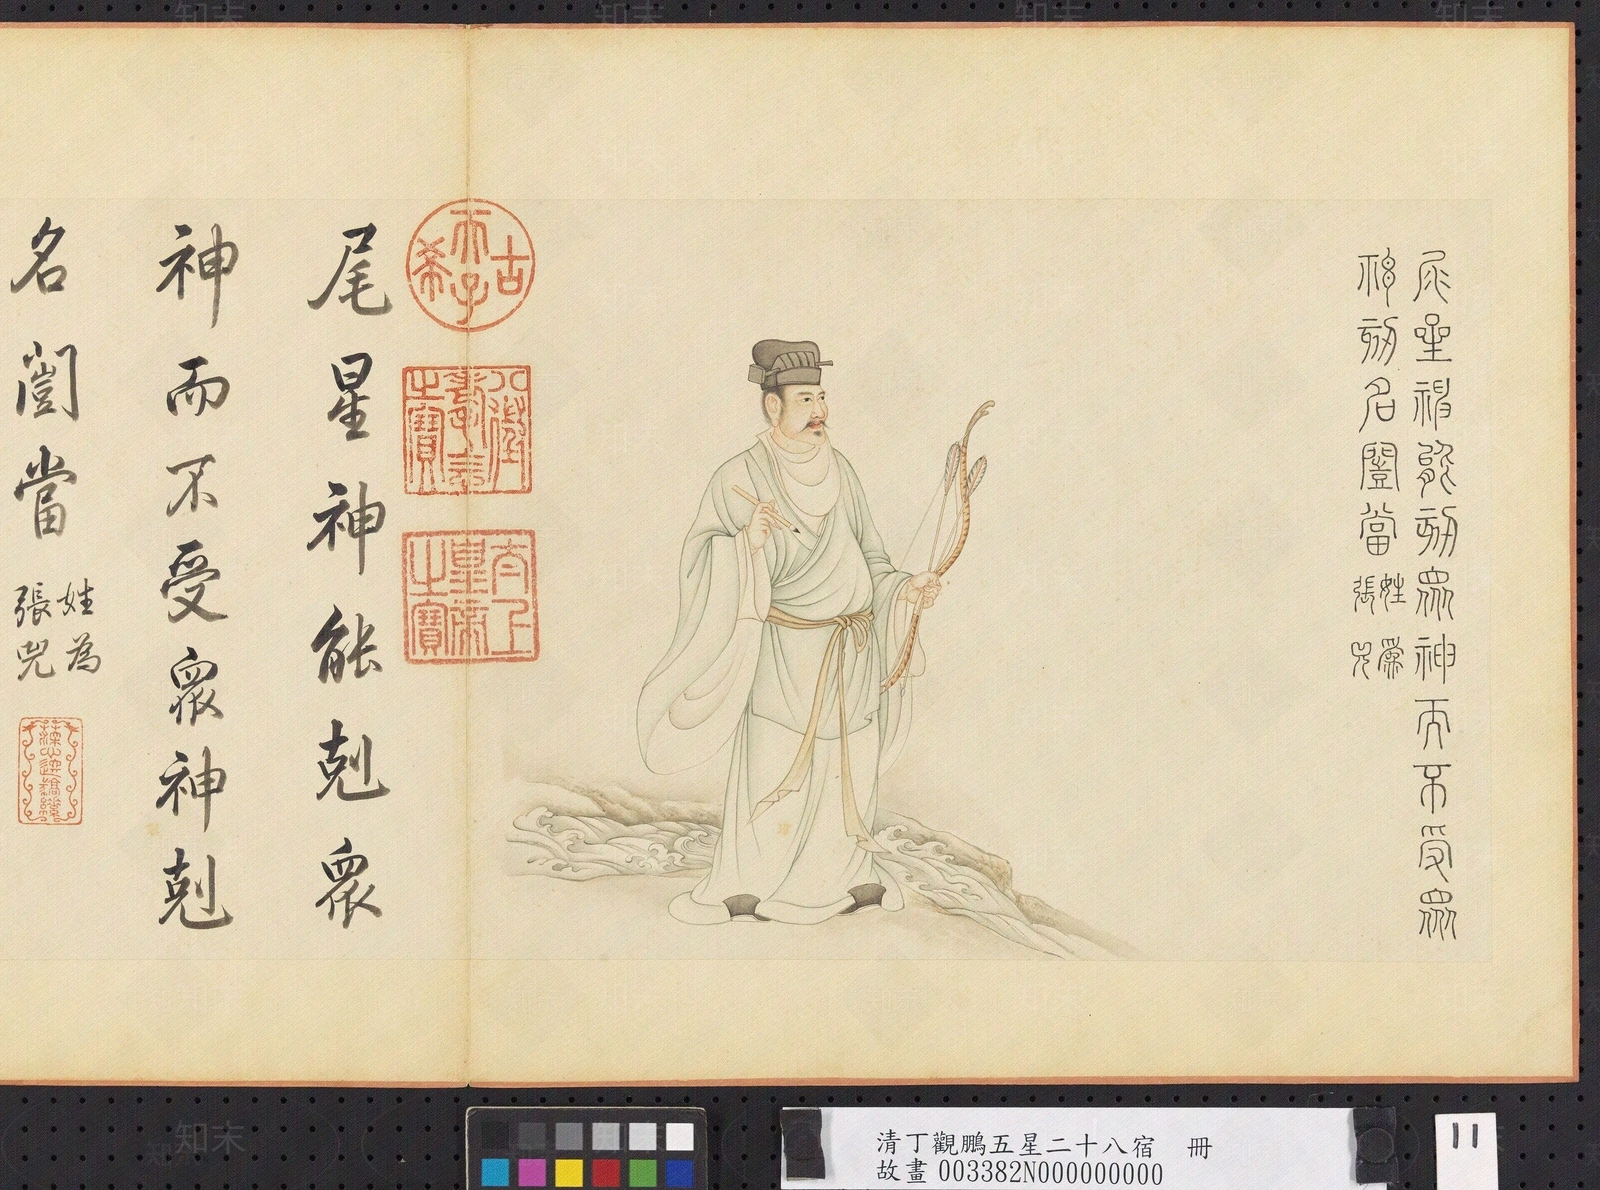 尾星神能剋眾神而不受眾
神剋名闓當姓為
張兕
古希天子
八徵耄念之寶
太上皇帝之寶
尾星神能剋眾
神而不受眾神剋
名闓當姓為
張兕
清丁觀鵬五星二十八宿 冊
故畫 003382N000000000
11
知末